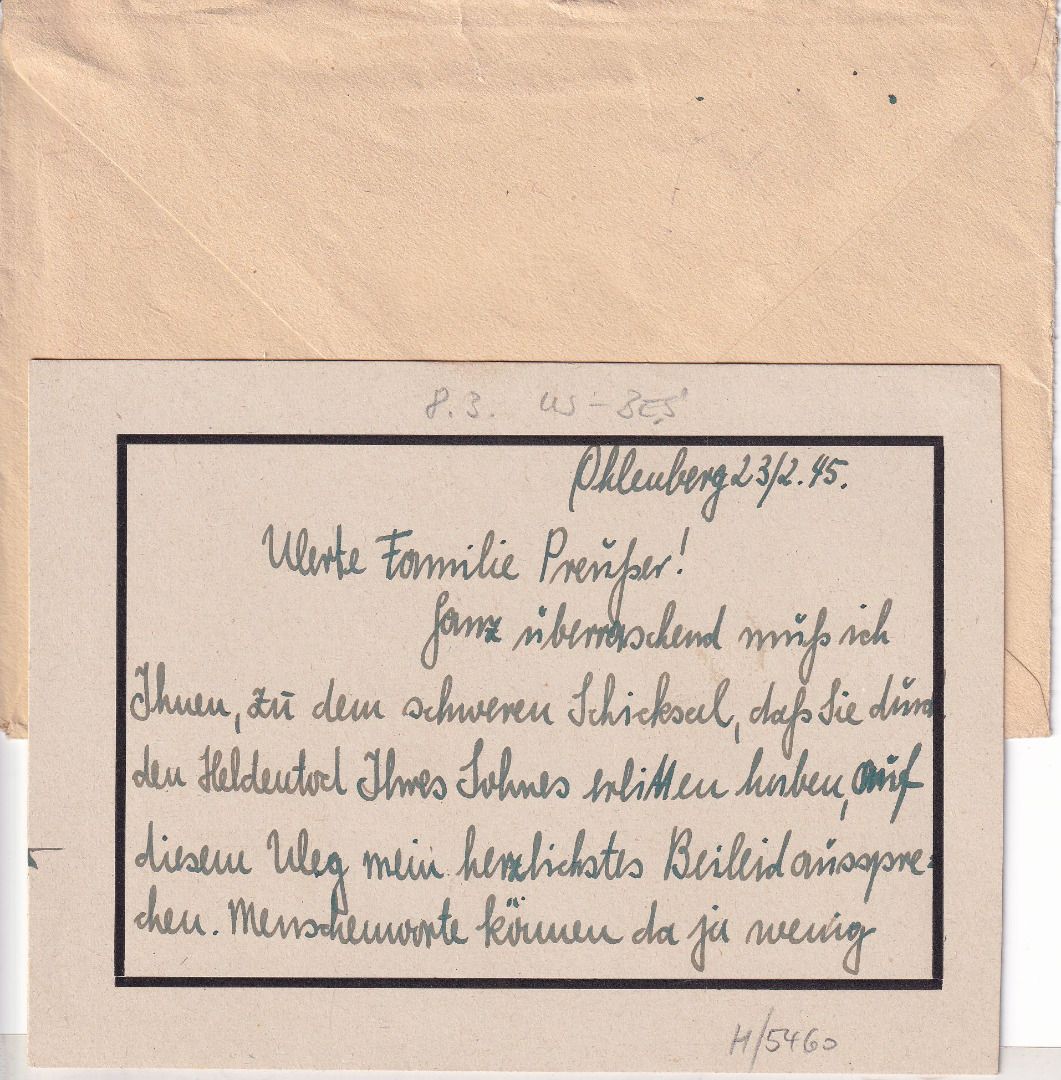 8.3. US-BES
Ohlenberg 23/2.45.
Werte Familie Preußer!
Ganz überraschend muß ich
Ihnen, zu dem schweren Schicksal, daß Sie durch
den Heldentod Ihres Sohnes erlitten haben, auf
diesem Weg mein herzlichstes Beileid ausspre-
chen. Menschenworte können da ja wenig
H/5460